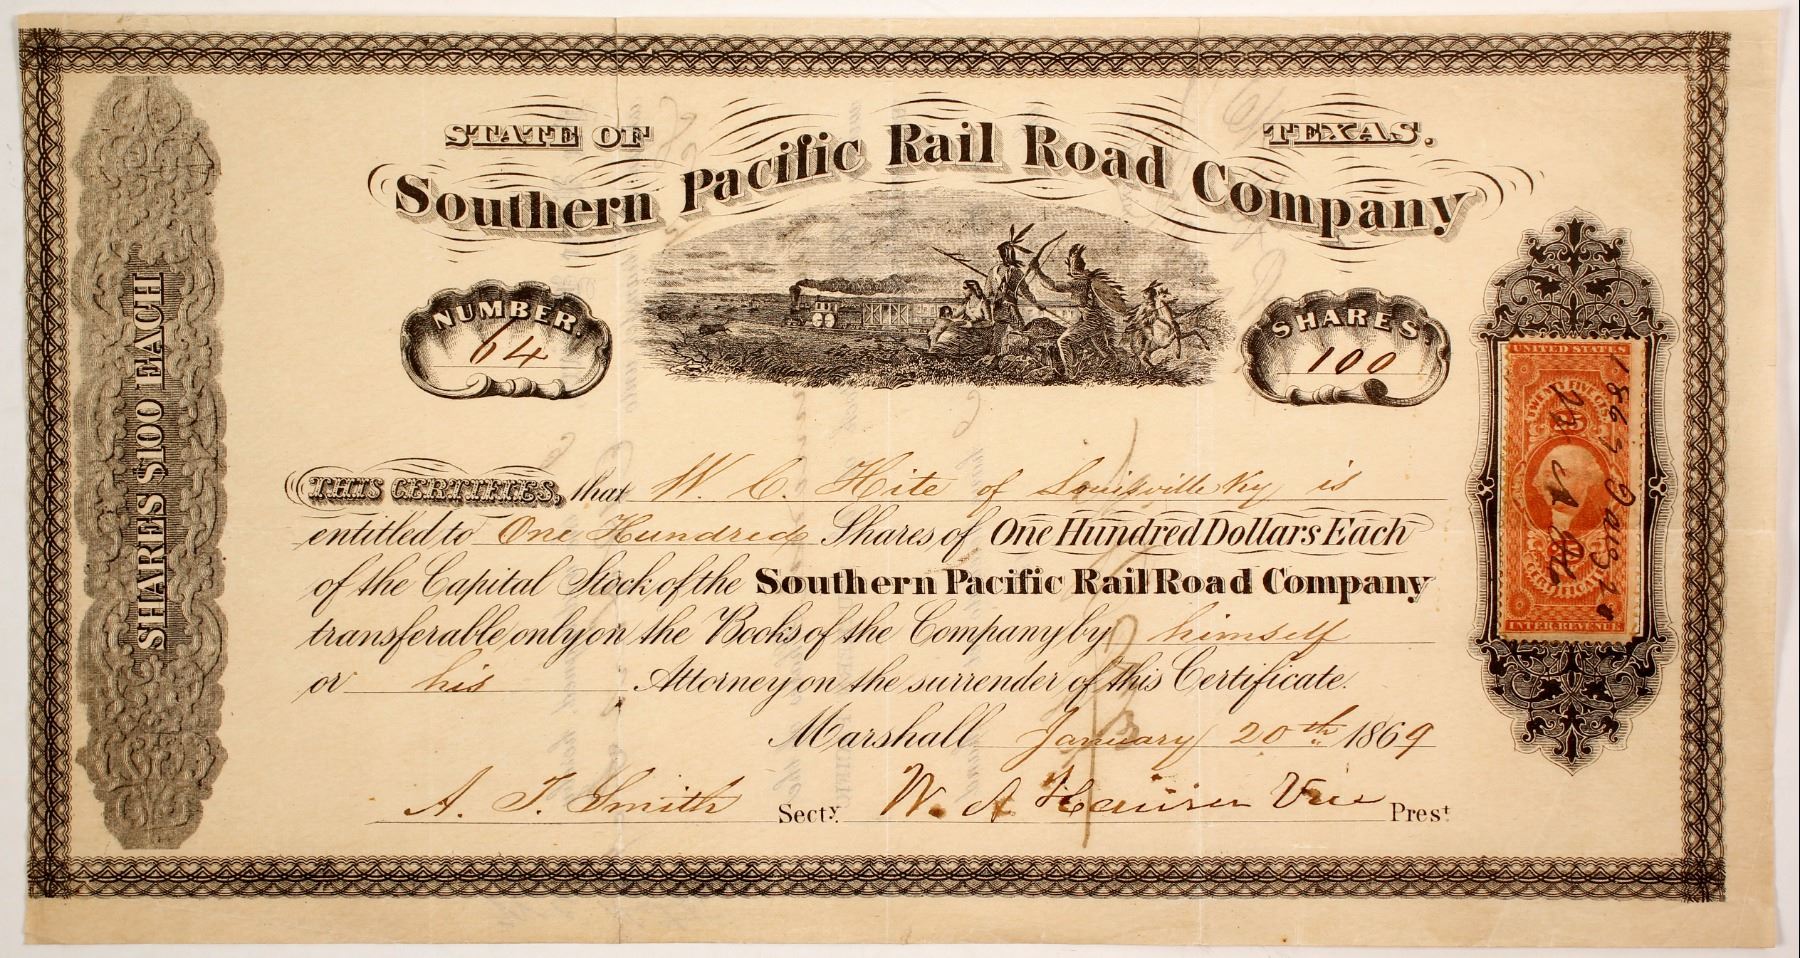 STATE OF TEXAS.
Southern Pacific Rail Road Company
NUMBER. 64
SHARES. 100
SHARES $100 EACH
THIS CERTIFIES, that W. C. Hite of Louisville Ky is
entitled to One Hundred Shares of One Hundred Dollars Each
of the Capital Stock of the Southern Pacific Rail Road Company
transferable only on the Books of the Company by himself
or his Attorney on the surrender of this Certificate.
Marshall January 20th 1869
A. T. Smith Secty. W. A. Vice Prest
UNITED STATES
TWENTY FIVE CTS.
CERTIFICATE
INTER. REVENUE